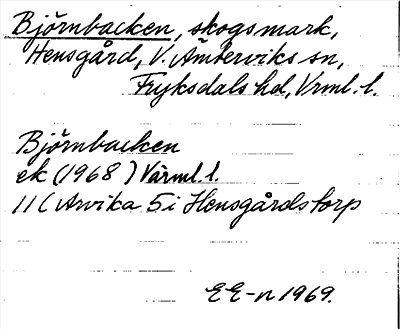 Björnbacken, skogsmark,
Hensgård, V. Ämterviks sn,
Fryksdals hd, Vrml. l.
Björnbacken
ek (1968) Värml. l.
11C Arvika 5i Hensgårdstorp
EE-n 1969.